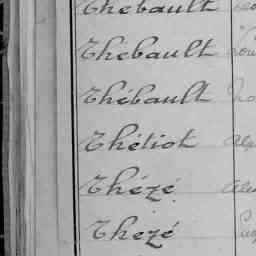 Thebault
Thébault
Thébault
Thétiot
Thézé
Thezé